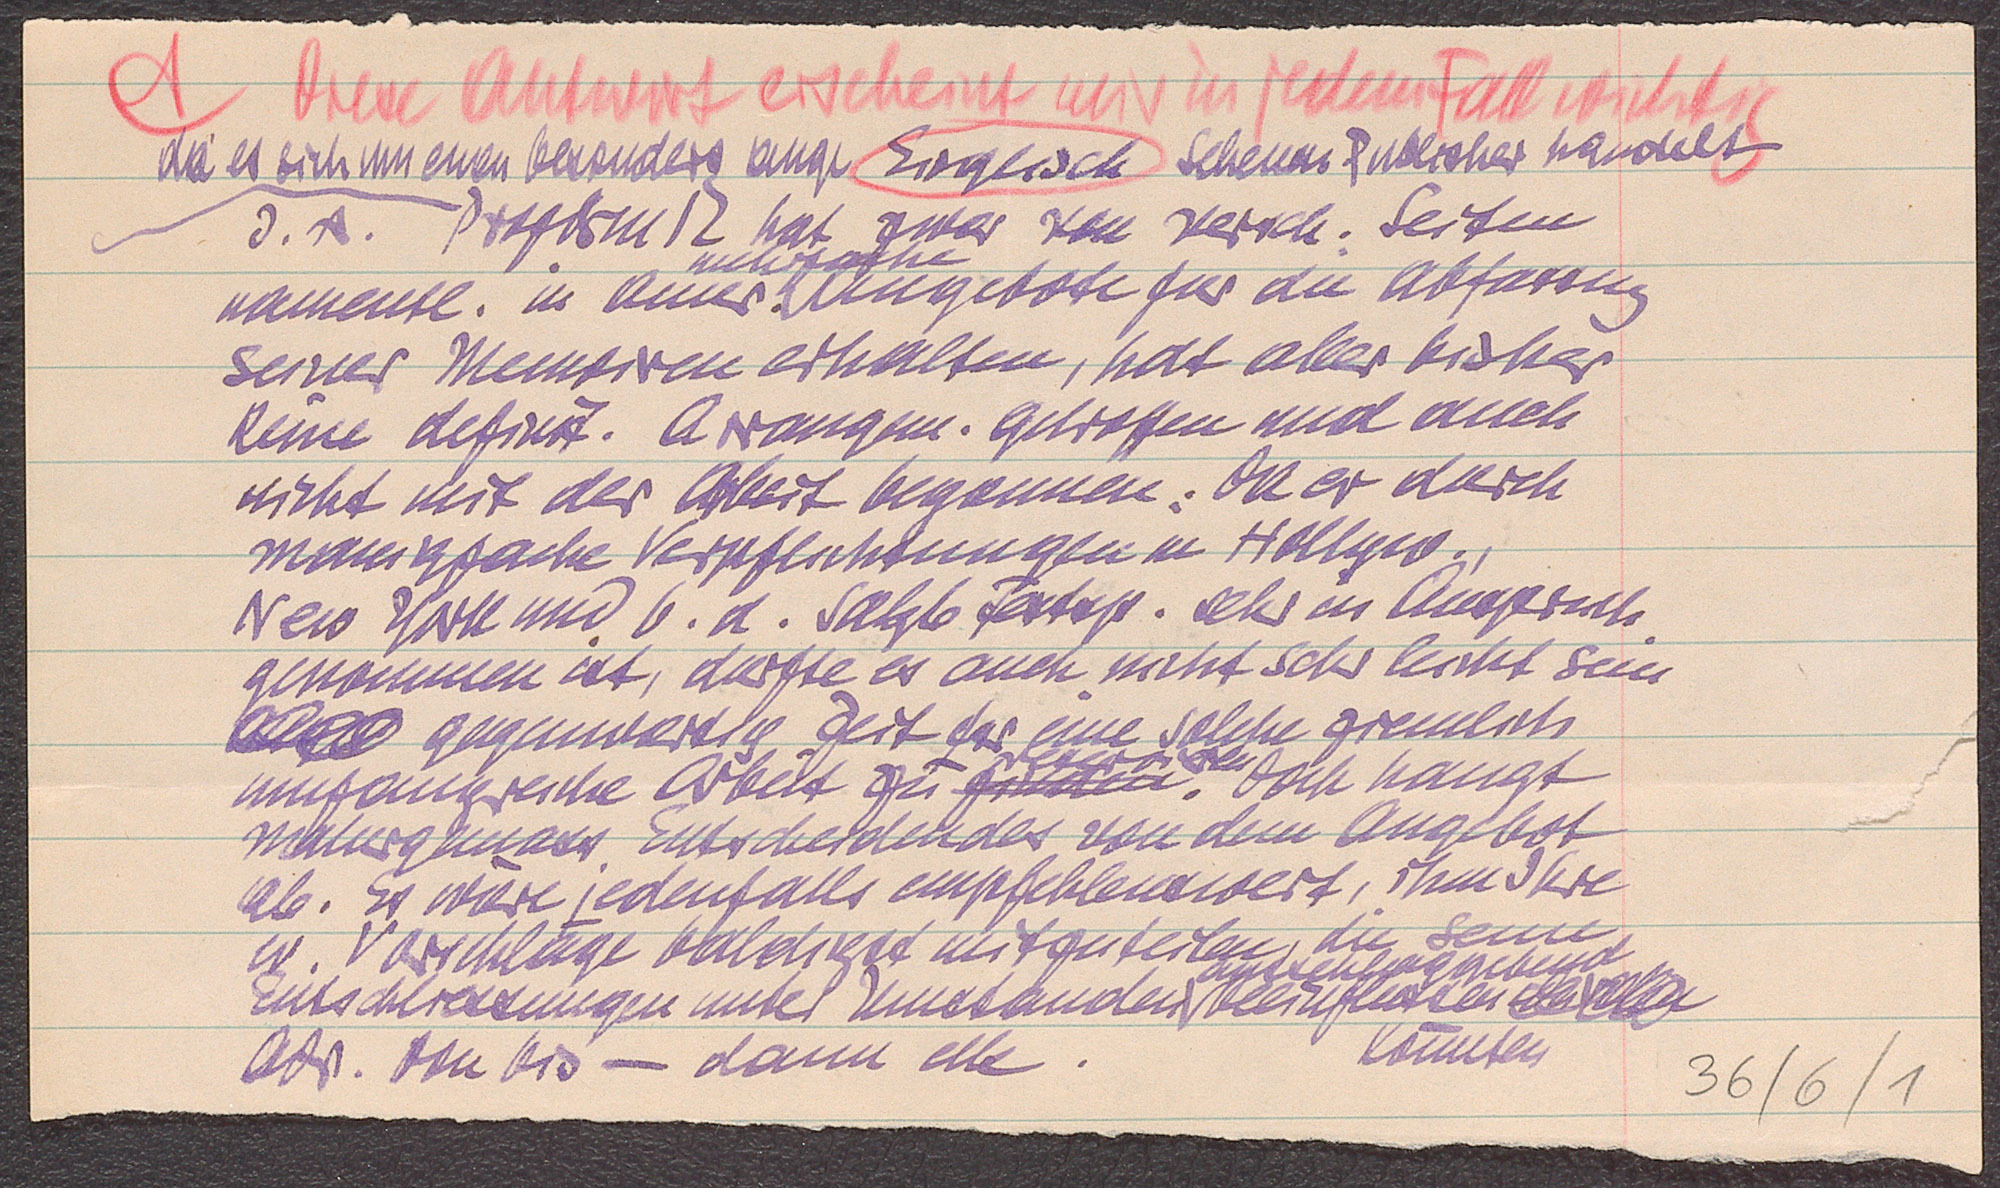 A Diese Antwort erscheint mir in jedem Fall wichtig
da es sich um einen besonders ange Englisch sehenen Publisher handelt
I. A. Prof hat zwar von versch. Seiten
mehrfache
namentl. in Amer. Angebote für die Abfassung
seiner Memoiren erhalten, hat aber bisher
keine definit. Arrangem. getroffen und auch
nicht mit der Arbeit begonnen. Da er durch
mannigfache Verpflichtungen in Hollyw.,
New York und b. d. Salzb Festsp. sehr in Anspruch
genommen ist, dürfte es auch nicht sehr leicht sein
gegenwärtig Zeit für eine solche ziemlich
reservieren
umfangreiche Arbeit zu finden. Doch hängt
naturgemäss Entscheidendes von dem Angebot
ab. Es wäre jedenfalls empfehlenswert, ihm Ihre
w. Vorschläge baldigst mitzuteilen, die seine
ausschlaggebend
Entschliessungen unter Umständen beeinflussen
könnten
Adr. von bis — dann
36/6/1